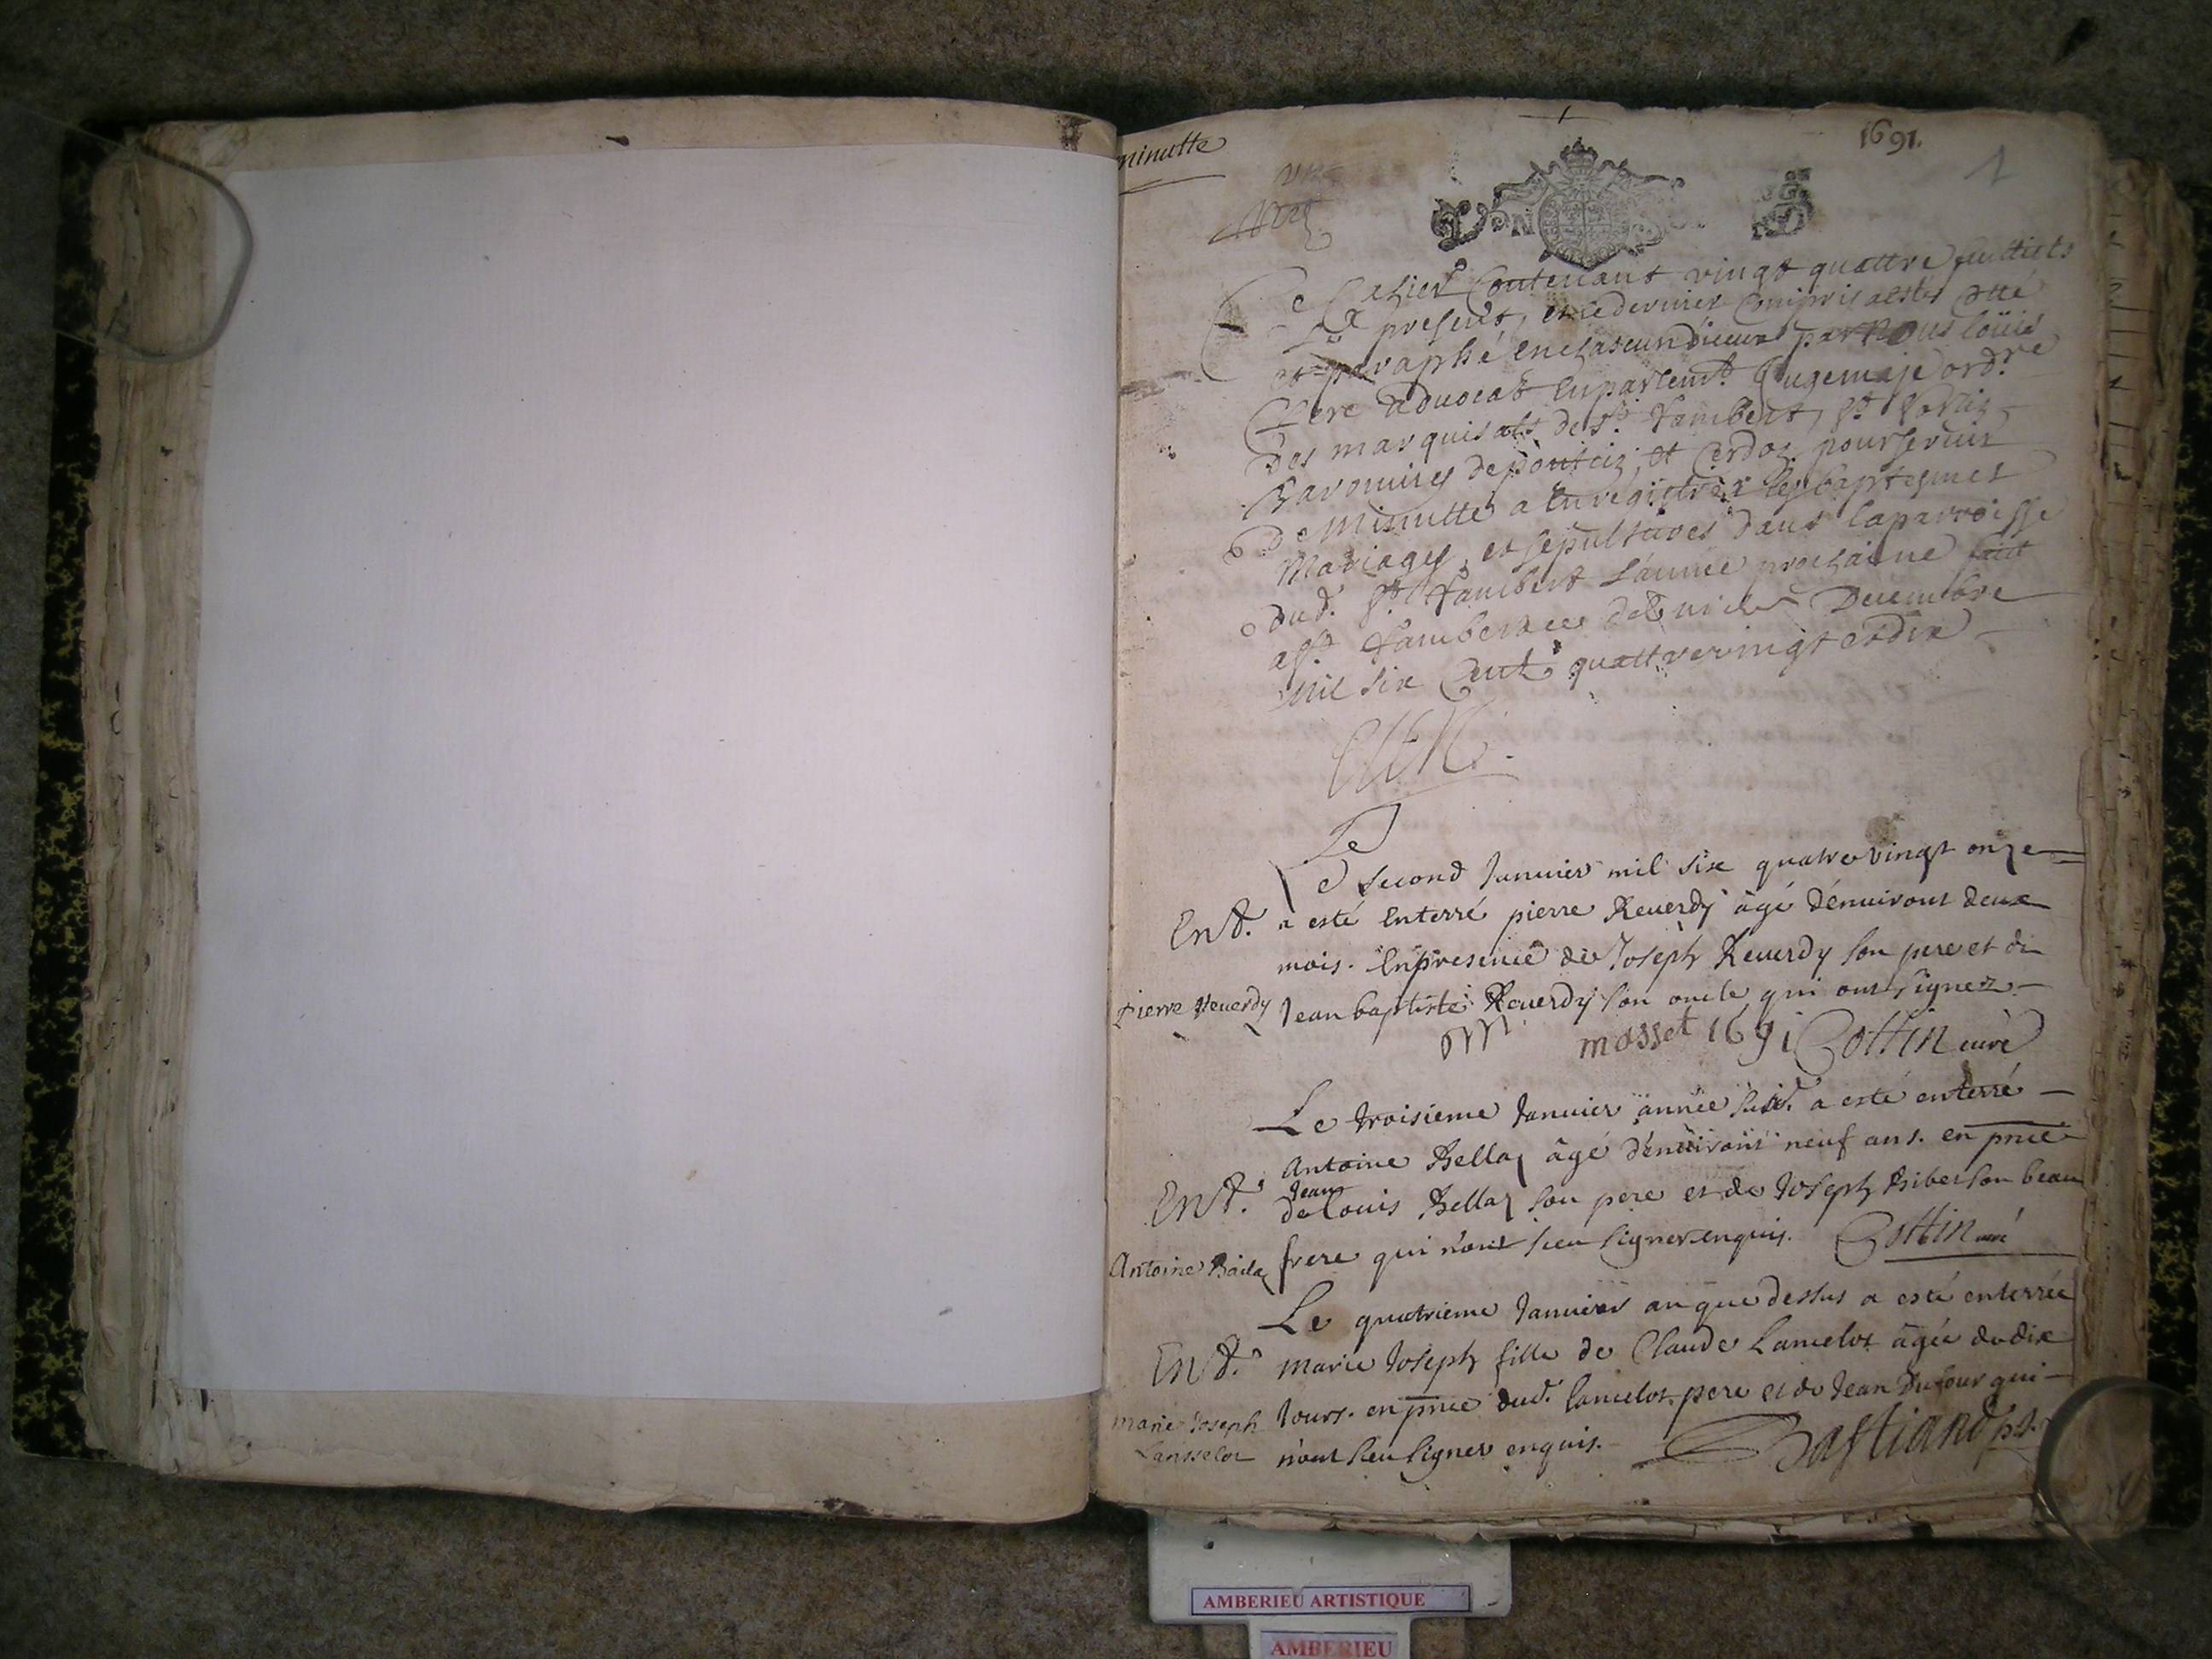 minutte
1691.
1
Ce Cahier Contenant vingt quattre feuillets
Le present, et le dernier Compris a estes Cotté
et paraphé en chascun d'iceux par Nous Loüis
Clerc advocat en parlemt. Juge maje ordre
Des marquisats de St. Rambert, St. Sorlin
Baronnies de poncin, et Cerdon pour servir
De Minutte a enregistrer les baptesmes
Mariages, et sepultures dans la parroisse
dud. St. Rambert l'année prochaine fait
a St. Rambert ce dernier Decembre
Mil six Cent quattrevingt et dix
Clerc.
Le second Janvier mil six quatrevingt onze
Ent. a esté enterré pierre Reuerdy âgé d'enuiront deux
mois. En presence de Joseph Reuerdy son pere et de
pierre Reuerdy
Jean baptiste Reuerdy son oncle qui ont signez
masset 1691 Cottin curé
Le troisieme Janvier année susd. a esté enterré
Antoine Bellaz âgé d'enuiront neuf ans. en pnce
Ent. de Jean Louis Bellaz son pere et de Joseph Ribes son beau
Antoine Baila
frere qui n'ont sceu signer enquis. Cottin curé
Le quatrieme Janvier an que dessus a esté enterrée
Ent. marie Joseph fille de Claude Lancelot âgée de dix
marie Joseph
Lansselot
Jours. en pnce dud. Lancelot pere et de Jean Dufour qui
n'ont sceu signer enquis. Bastiand pt.
AMBERIEU ARTISTIQUE
AMBERIEU